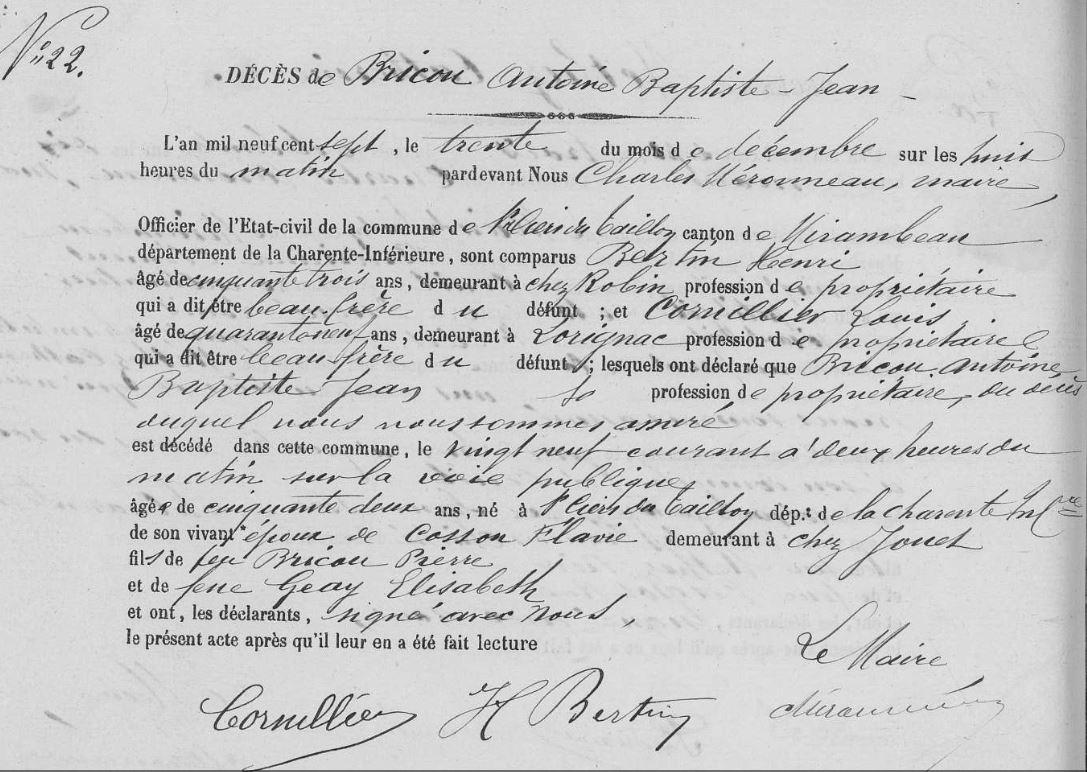 N° 22.
DÉCÈS de Bricou Antoine Baptiste - Jean -
L'an mil neuf cent sept, le trente du mois de décembre sur les huit
heures du matin pardevant Nous Charles Méronneau, maire
Officier de l'Etat-civil de la commune de St Ciers du Taillon canton de Mirambeau
département de la Charente-Inférieure, sont comparus Bertin Henri
âgé de cinquante trois ans, demeurant à chez Robin profession de propriétaire
qui a dit être beau frère du défunt ; et Cornillier Louis
âgé de quarante neuf ans, demeurant à Lorignac profession de propriétaire
qui a dit être beau frère du défunt ; lesquels ont déclaré que Bricou Antoine
Baptiste Jean profession de propriétaire, du décès
duquel nous nous sommes assuré
est décédé dans cette commune, le vingt neuf courant à deux heures du
matin sur la voie publique
âgé de cinquante deux ans, né à St Ciers du Taillon dép.t de la Charente Infre
de son vivant époux de Cosson Flavie demeurant à chez Jouet
fils de feu Bricou Pierre
et de feue Geay Elisabeth
et ont, les déclarants, signé avec nous
le présent acte après qu'il leur en a été fait lecture
Le Maire
Cornillier H Bertin